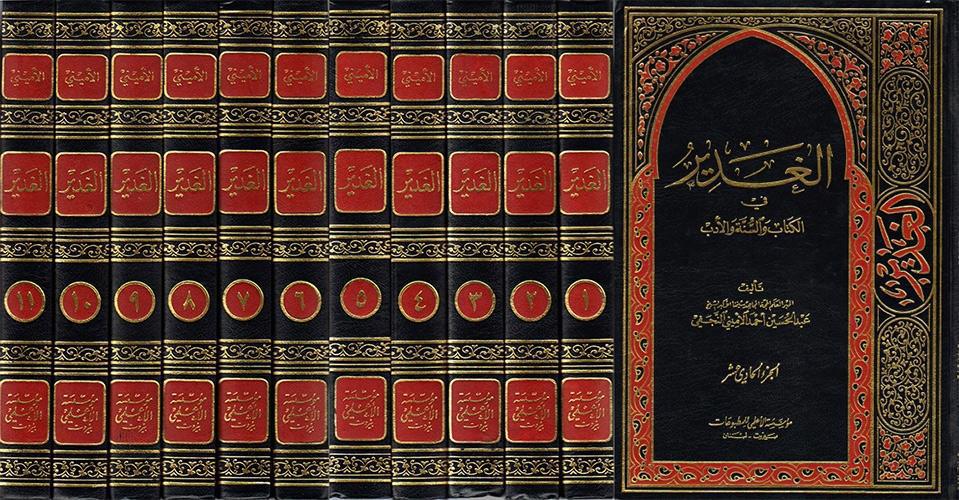 الغَديْر
في
الكتاب والسُّنَّة والأدب
تأليف
عبد الحسين أحمد الأميني النجفي
الجزء الحادي عشر
مؤسسة الأعلمي للمطبوعات
بيروت - لبنان
الغدير
الأميني
الغدير
١
مؤسسة
الأعلمي
بيروت
الأميني
الغدير
٢
مؤسسة
الأعلمي
بيروت
الأميني
الغدير
٣
مؤسسة
الأعلمي
بيروت
الأميني
الغدير
٤
مؤسسة
الأعلمي
بيروت
الأميني
الغدير
٥
مؤسسة
الأعلمي
بيروت
الأميني
الغدير
٦
مؤسسة
الأعلمي
بيروت
الأميني
الغدير
٧
مؤسسة
الأعلمي
بيروت
الأميني
الغدير
٨
مؤسسة
الأعلمي
بيروت
الأميني
الغدير
٩
مؤسسة
الأعلمي
بيروت
الأميني
الغدير
١٠
مؤسسة
الأعلمي
بيروت
الأميني
الغدير
١١
مؤسسة
الأعلمي
بيروت